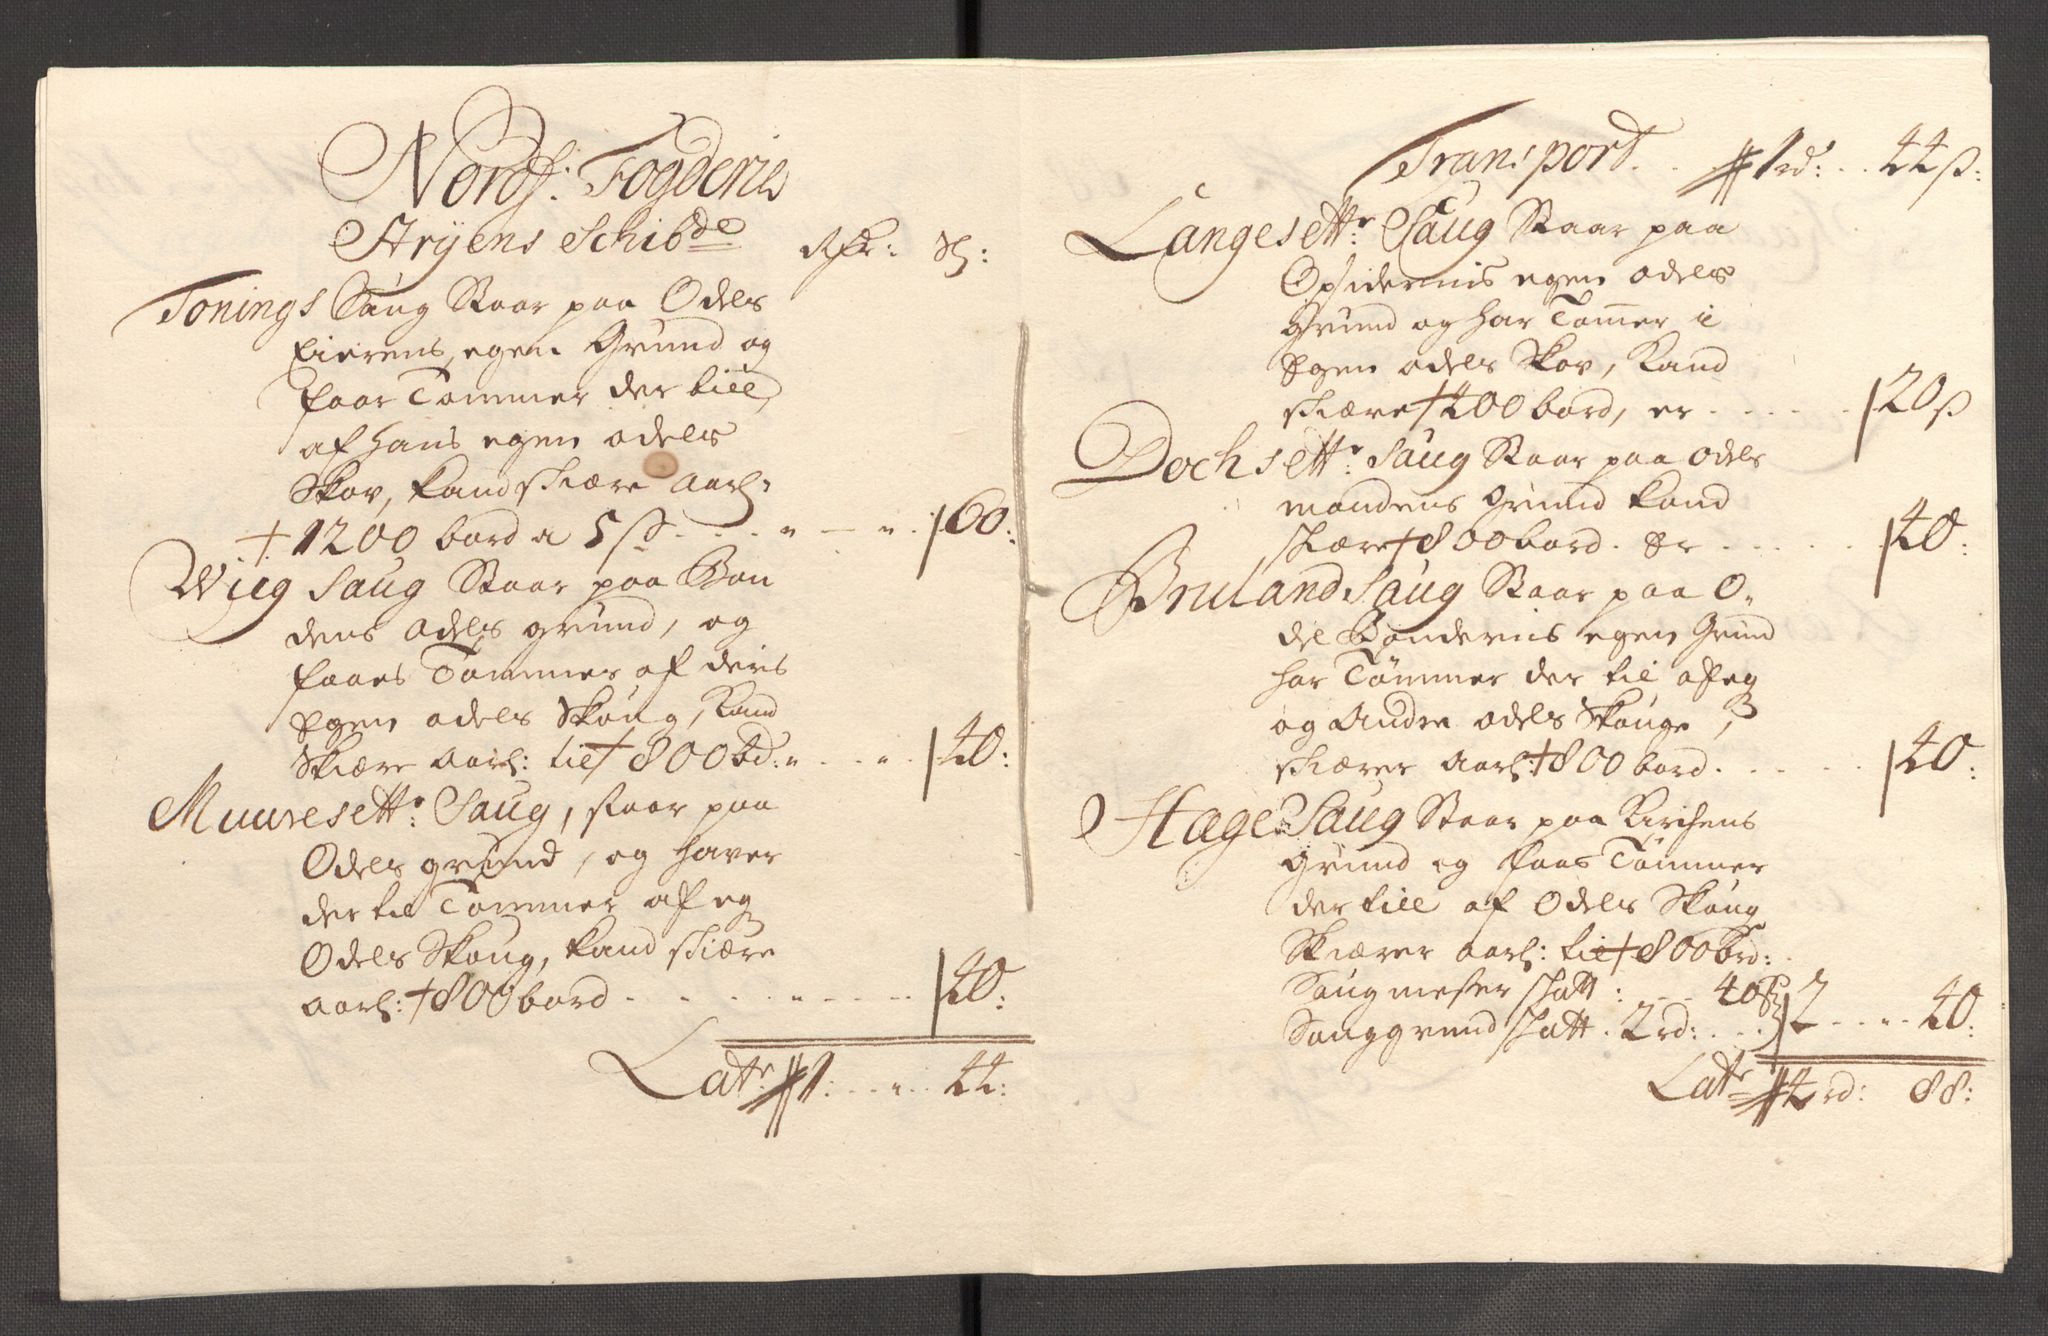 Nordf: Fogderie
Stryens Schibde Rdr: ß:
Tonings Saug Staar paa Odels
Eierens egen Grund og
faar Tømmer der till
af hans egen odels
Skov, kand skiære aarl:
+ 1200 bord a 5 ß 60:
Wiig Saug Staar paa Bon
dens odels grund, og
faaes Tømmer af deris
Egen odels Skoug, Kand
Skiære aarl: til + 800 bd: 40:
Muuresettr: Saug, staar paa
Odels grund, og haver
der til Tømmer af eg
Odels Skoug, kand skiære
aarl: + 800 bord 40:
Latr 1 44:
Transport 1 rd: 44 ß:
Langesettr: Saug Staar paa
Opsidernis egen odels
grund og har Tømer i
Egen odels Skov, Kand
skiære + 400 bord, er 20 ß
Dochsettr: Saug Staar paa odels
mandens grund kand
skiære + 800 bord. Er 40:
Bruland Saug Staar paa O-
del Bøndernis egen Grund
har Tømmer der til af eg
og Andre odels Skouge,
skiærer aarl: + 800 bord 40:
Hæge Saug Staar paa Kirchens
grund og faas Tømmer
der till af Odels Skoug
Skiærer aarl: til + 800 brd:
Saugmester skatt: 40 ß
Sauggrund skatt. 2 rd: 2 40:
Latr 4 rd: 88: